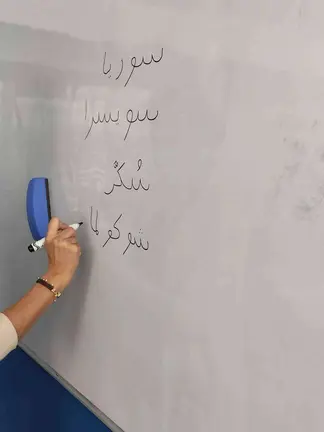 سوريا
سويسرا
سُكّر
شوكولا